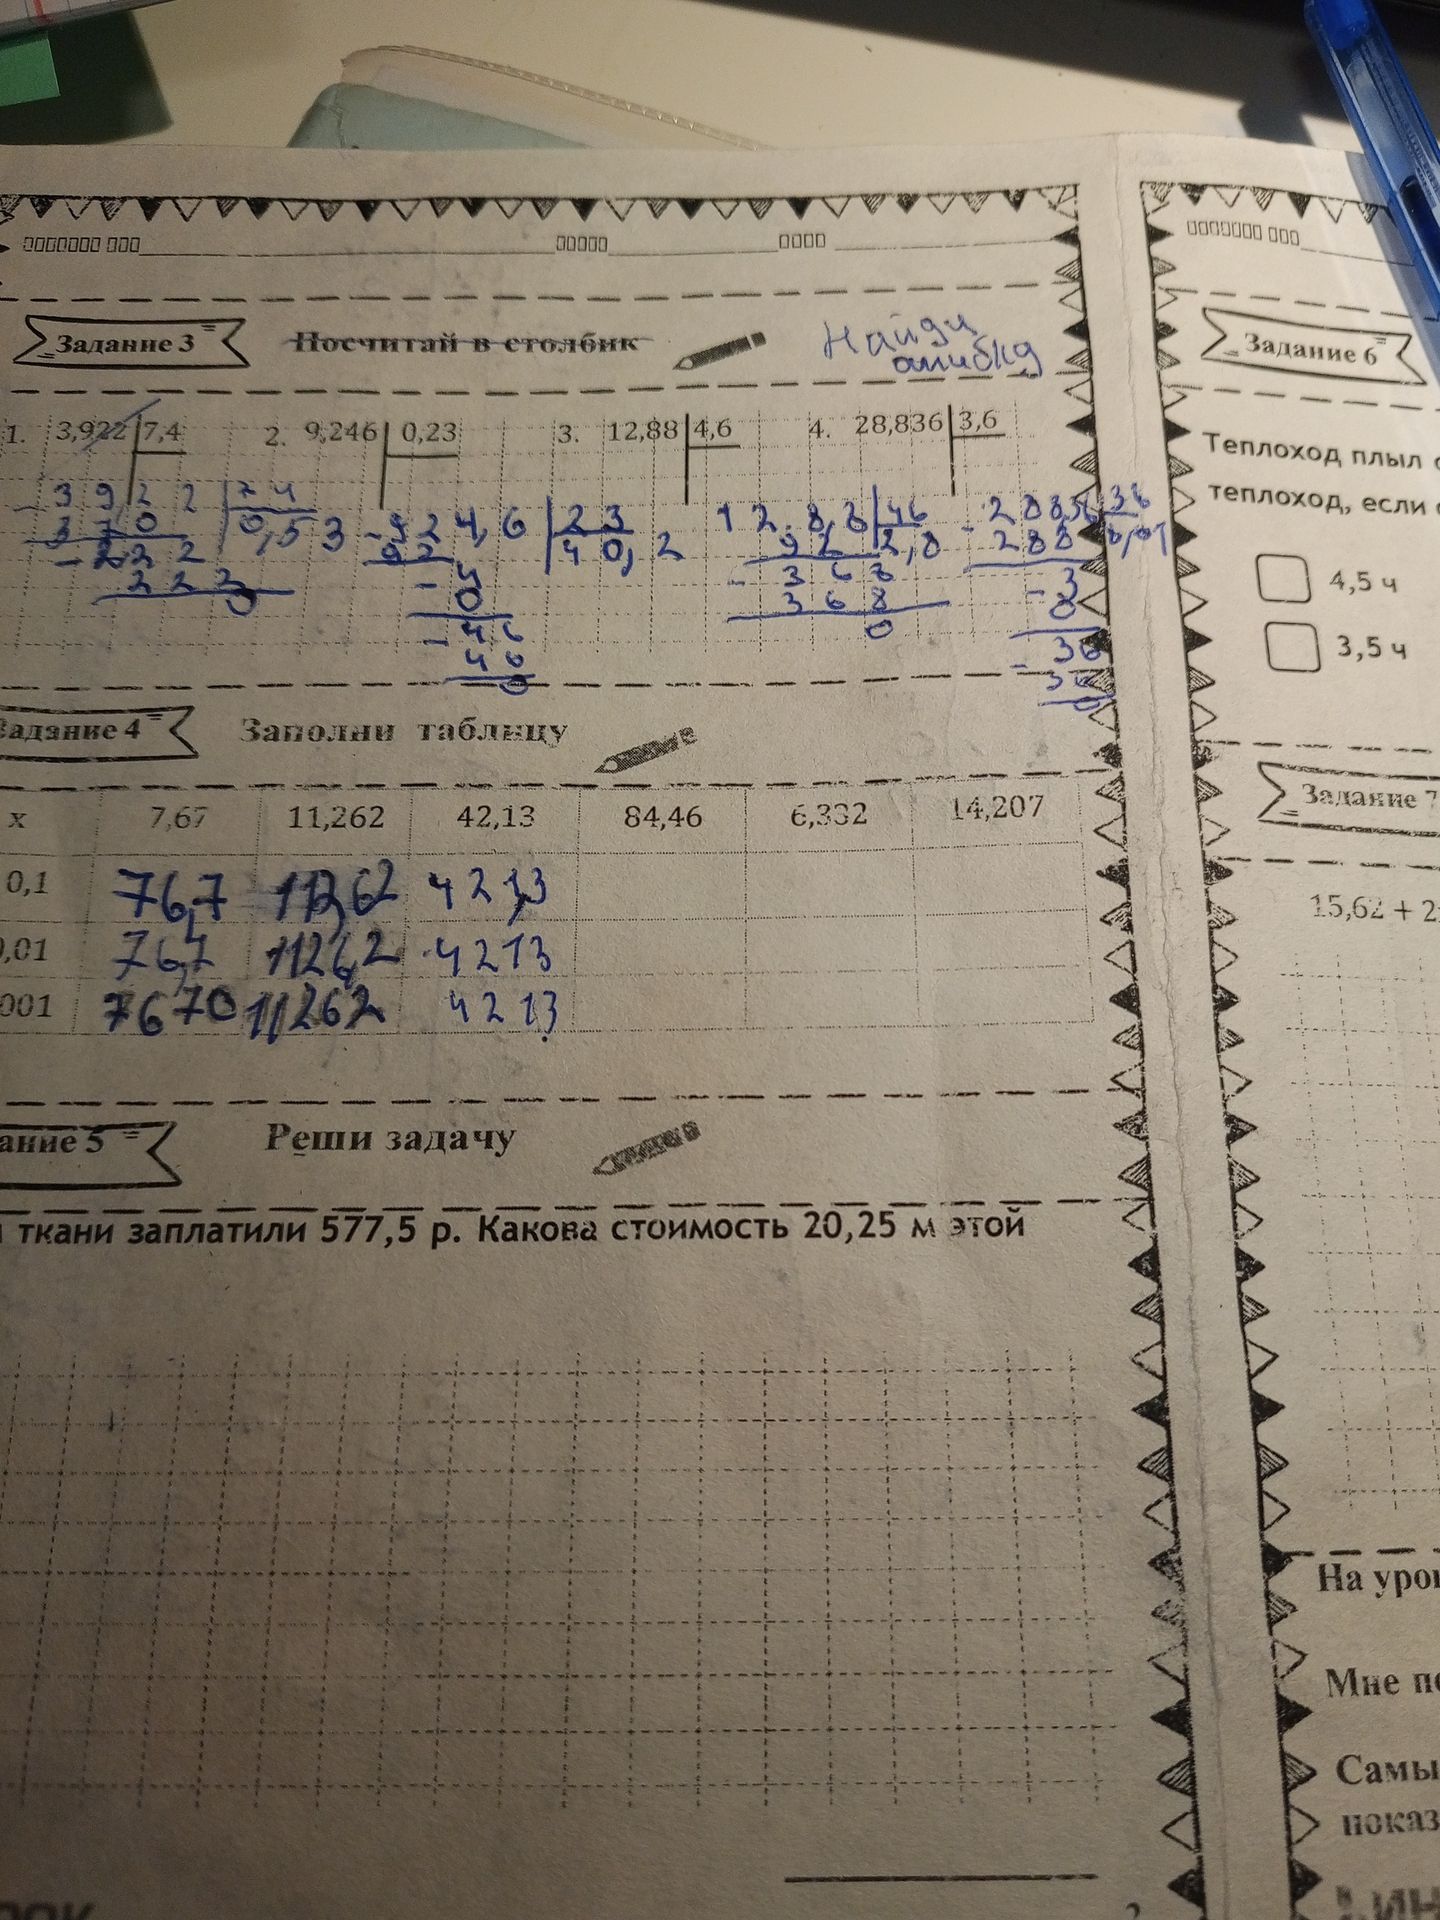 Задание 3 Посчитай в столбик Найди ошибку
1. 3,922 7,4 2. 9,246 0,23 3. 12,88 4,6 4. 28,836 3,6
39,22 74
370 0,53
222
222
0
924,6 23
92 40,2
4
0
46
46
0
128,8 46
92 2,8
368
368
0
288,36 36
288 8,01
3
0
36
36
0
Задание 4 Заполни таблицу
x 7,67 11,262 42,13 84,46 6,332 14,207
0,1 76,7 112,62 421,3
,01 76,7 1126,2 4213
001 7670 11262 4213
ание 5 Реши задачу
ткани заплатили 577,5 р. Какова стоимость 20,25 м этой
Задание 6
Теплоход плыл
теплоход, если
4,5 ч
3,5 ч
Задание 7
15,62 + 2
На уро
Мне по
Самы
показ